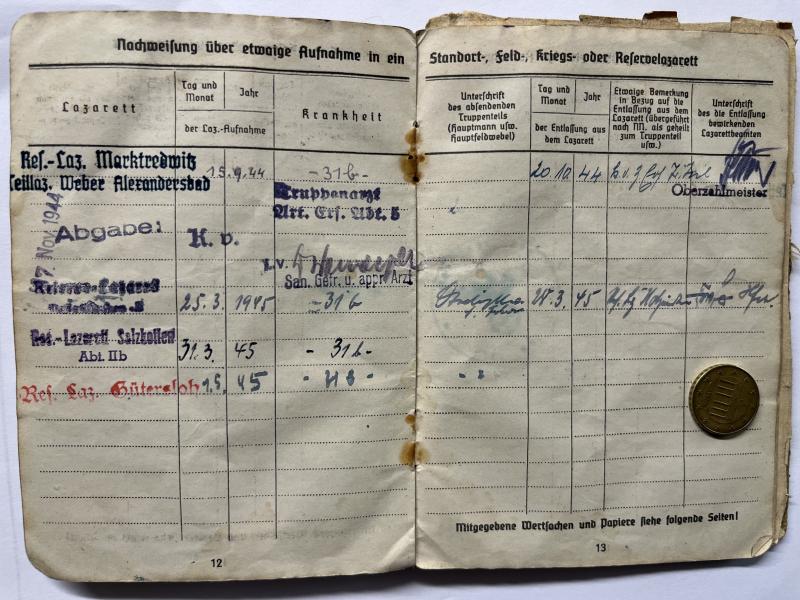 Nachweisung über etwaige Aufnahme in ein
Standort-, Feld-, Kriegs- oder Reservelazarett
Lazarett
Tag und
Monat
Jahr
der Laz.-Aufnahme
Krankheit
Unterschrift
des absendenden
Truppenteils
(Hauptmann usw.
Hauptfeldwebel)
Tag und
Monat
Jahr
der Entlassung aus
dem Lazarett
Etwaige Bemerkung
in Bezug auf die
Entlassung aus dem
Lazarett (übergeführt
nach NN. als geheilt
zum Truppenteil
usw.)
Unterschrift
des die Entlassung
bewirkenden
Lazarettbeamten
Res.-Laz. Marktredwitz
Teillaz. Weber Alexandersbad
15.9.44
-31b-
20.10 44
Oberzahlmeister
Truppenarzt
Art. Ers. Abt. 5
7. Nov. 1944
Abgabe:
K. v.
I.V.
San. Gefr. u. appr. Arzt
25.3. 1945
-31b
28.3. 45
Res.-Lazarett Salzkotten
Abt. IIb
31.3. 45
-31b-
Res. Laz. Gütersloh
1.5. 45
Mitgegebene Wertsachen und Papiere siehe folgende Seiten!
12
13